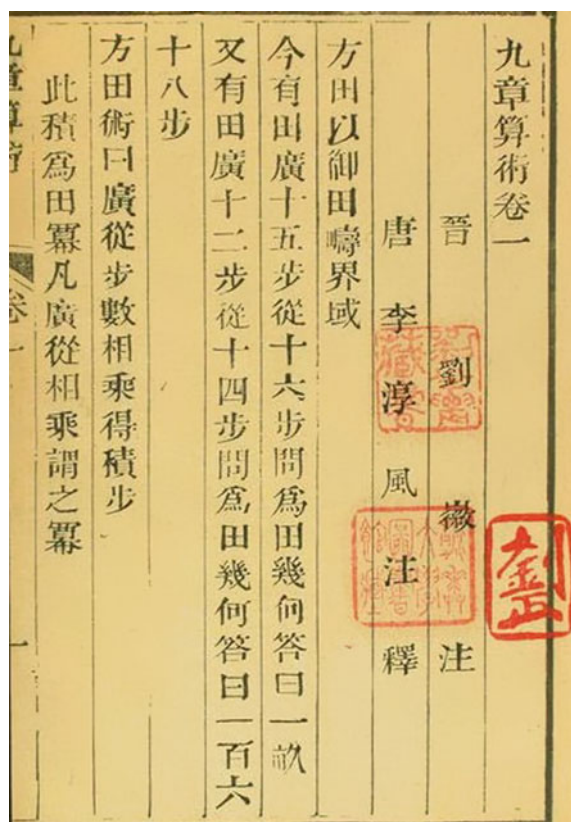 九章算術卷一
晉劉徽注
唐李淳風注釋
方田以御田疇界域
今有田廣十五步從十六步問爲田幾何答曰一畝
又有田廣十二步從十四步問爲田幾何答曰一百六
十八步
方田術曰廣從步數相乘得積步
此積爲田冪凡廣從相乘謂之冪
九章算術
卷一
一